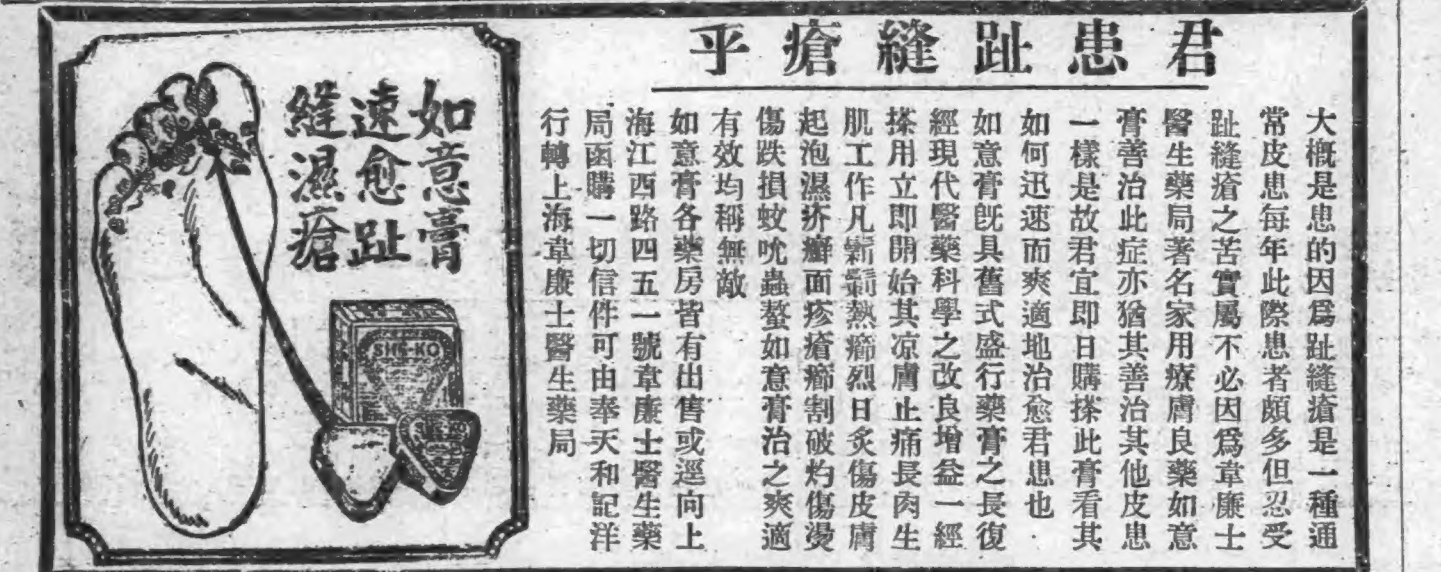 君患趾縫瘡乎
大槪是患的因爲趾縫瘡是一種通
常皮患每年此際患者頗多但忍受
趾縫瘡之苦實屬不必因爲韋廉士
醫生藥局著名家用療膚良藥如意
膏善治此症亦猶其善治其他皮患
一樣是故君宜即日購搽此膏看其
如何迅速而爽適地治愈君患也
如意膏旣具舊式盛行藥膏之長復
經現代醫藥科學之改良增益一經
搽用立即開始其凉膚止痛長肉生
肌工作凡熱癤烈日炙傷皮膚
起泡濕疥癬面疹瘡癤割破灼傷燙
傷跌損蚊吮蟲螫如意膏治之爽適
有效均稱無敵
如意膏各藥房皆有出售或逕向上
海江西路四五一號韋廉士醫生藥
局函購一切信件可由奉天和記洋
行轉上海韋廉士醫生藥局
如意膏
速愈趾
縫濕瘡
SHE-KO
SHE-KO